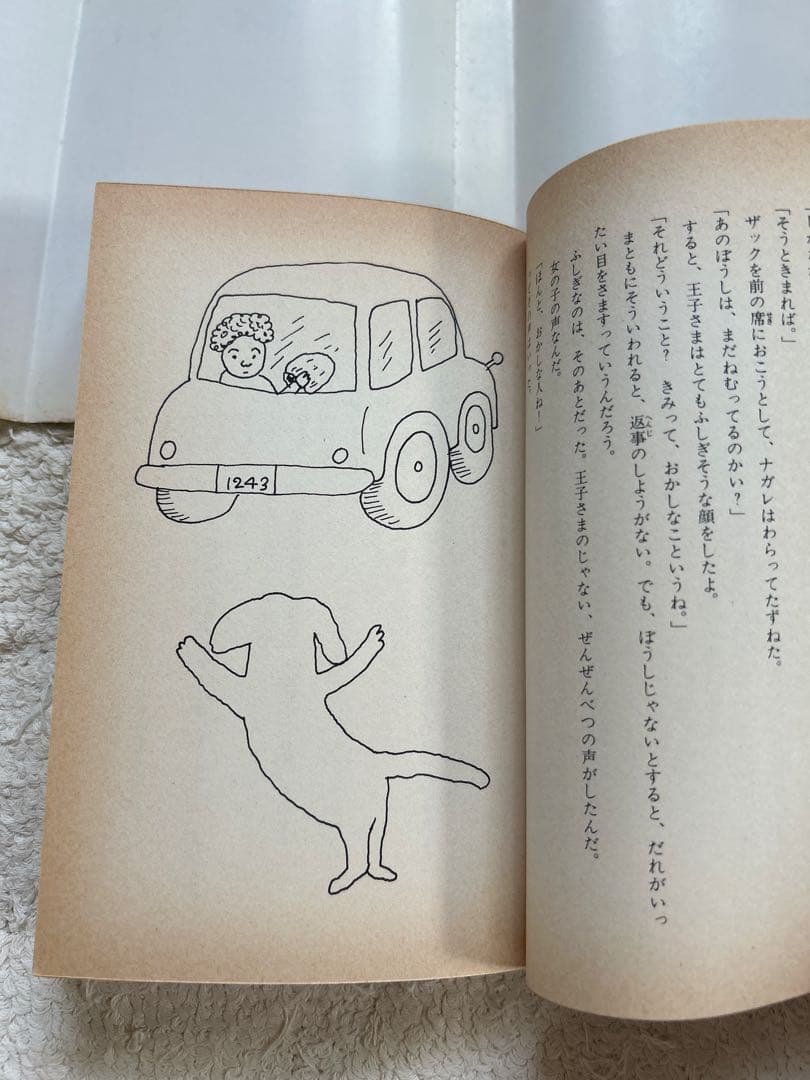 「そうときまれば。」
ザックを前の席におこうとして、ナガレはわらってたずねた。
「あのぼうしは、まだねむってるのかい？」
すると、王子さまはとてもふしぎそうな顔をしたよ。
「それどういうこと？　きみって、おかしなこというね。」
まともにそういわれると、返事のしようがない。でも、ぼうしじゃないとすると、だれがいっ
たい目をさますっていうんだろう。
ふしぎなのは、そのあとだった。王子さまのじゃない、ぜんぜんべつの声がしたんだ。
女の子の声なんだ。
「ほんと、おかしな人ね！」
1243